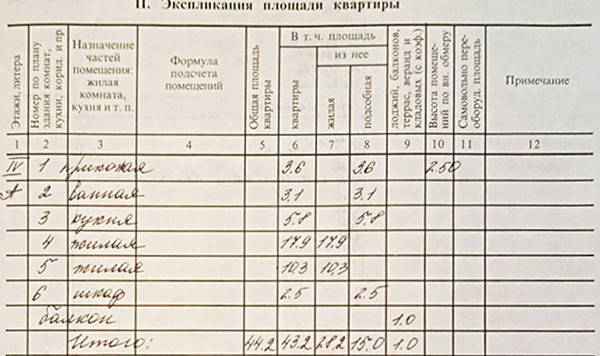 II. Экспликация площади квартиры
Этажи, литера | Номер по плану здания комнат, кухни, корид. и пр. | Назначение частей помещения: жилая комната, кухня и т. п. | Формула подсчета помещений | Общая площадь квартиры | В т. ч. площадь | лоджий, балконов, террас, веранд и кладовых (с коэф.) | Высота помещений по вн. обмеру | Самовольно переоборуд. площадь | Примечание
из нее
квартиры | жилая | подсобная
1 2 3 4 5 6 7 8 9 10 11 12
IV 1 прихожая 3.6 3.6 2.50
А 2 ванная 3.1 3.1
3 кухня 5.8 5.8
4 жилая 17.9 17.9
5 жилая 10.3 10.3
6 шкаф 2.5 2.5
балкон 1.0
Итого: 44.2 43.2 28.2 15.0 1.0